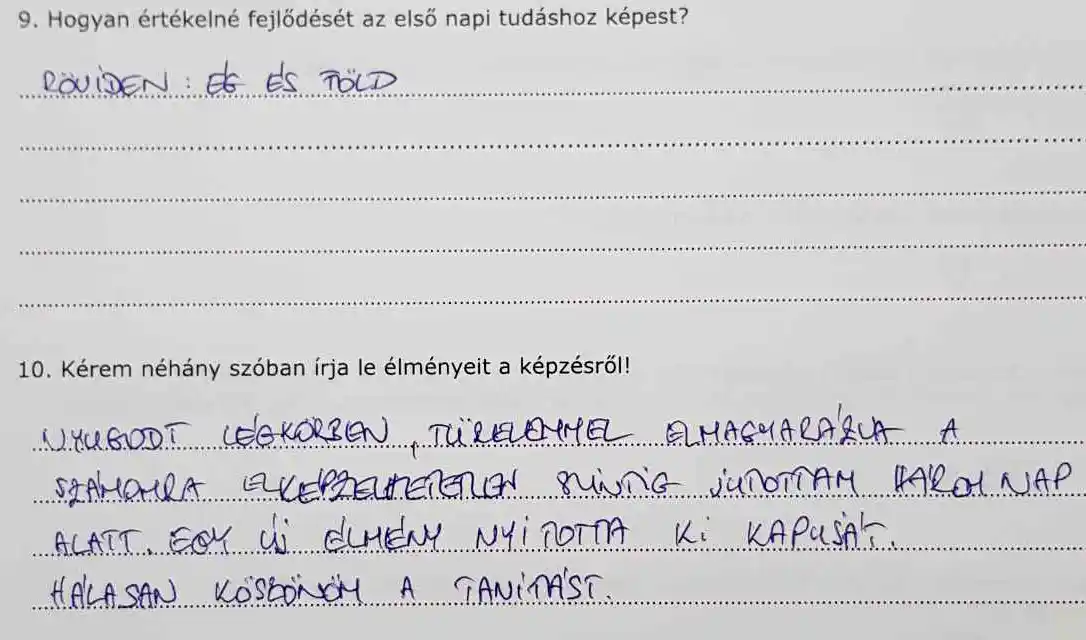 9. Hogyan értékelné fejlődését az első napi tudáshoz képest?
RÖVIDEN : ÉG ÉS FÖLD
10. Kérem néhány szóban írja le élményeit a képzésről!
NYUGODT LÉGKÖRBEN, TÜRELEMMEL ELMAGYARÁZVA A
SZÁMOMRA ELKÉPZELHETETLEN SZINTIG JUTOTTAM HÁROM NAP
ALATT. EGY ÚJ ÉLMÉNY NYITOTTA KI KAPUSÁT.
HÁLÁSAN KÖSZÖNÖM A TANÍTÁST.